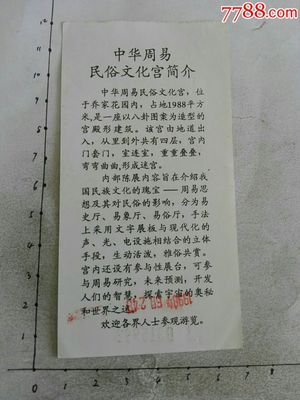 7788.com
中华周易
民俗文化宫简介
中华周易民俗文化宫，位
于乔家花园内，占地1988平方
米，是一座以八卦图案为造型的
宫殿形建筑。该宫由地道出
入，从里到外共有四层，宫内
门套门，室连室，重重叠叠，
弯弯曲曲，形成迷宫。
内部陈展内容旨在介绍我
国民族文化的瑰宝——周易思
想及其对民俗的影响，分为易
史厅、易象厅、易俗厅，手法
上采用文字展板与现代化的
声、光、电设施相结合的立体
手段，生动活泼，雅俗共赏。
宫内还设有参与性展台，可参
与周易研究，未来预测，开发
人们的智慧，探索宇宙的奥秘
和世界之谜。
欢迎各界人士参观游览。
0 1 2 3 4 5 6 7 8